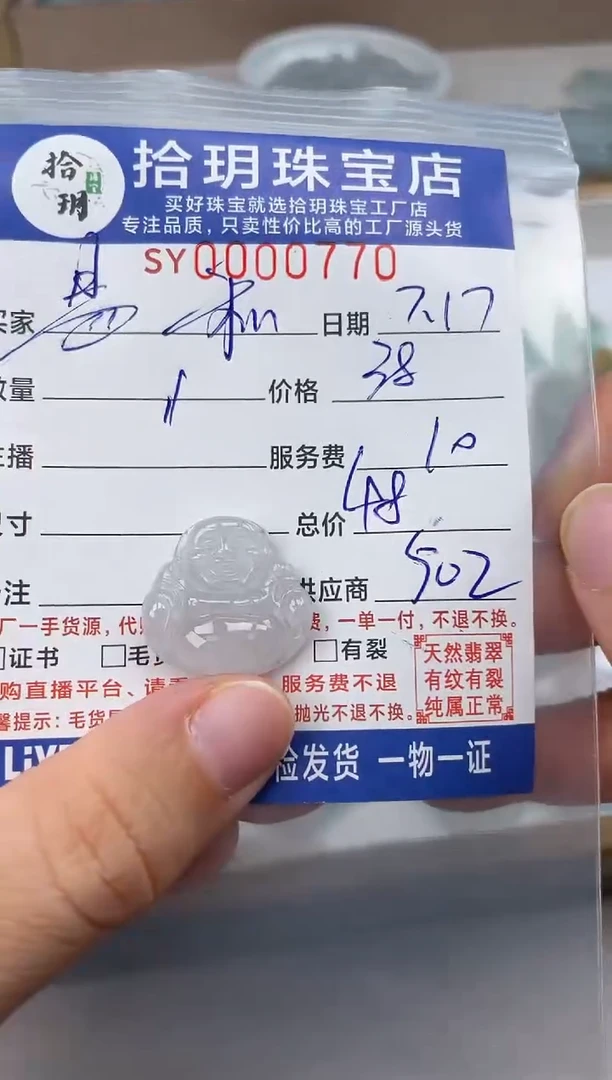 拾玥
拾玥珠宝店
买好珠宝就选拾玥珠宝工厂店
专注品质，只卖性价比高的工厂源头货
SY0000770
买家 日期 7.17
数量 1 价格 38
主播 服务费 10
尺寸 总价 48
备注 供应商 502
厂一手货源，代 费，一单一付，不退不换。
证书 毛 有裂
购直播平台、请 服务费不退
馨提示：毛货 抛光不退不换。
天然翡翠
有纹有裂
纯属正常
LiV 检发货 一物一证